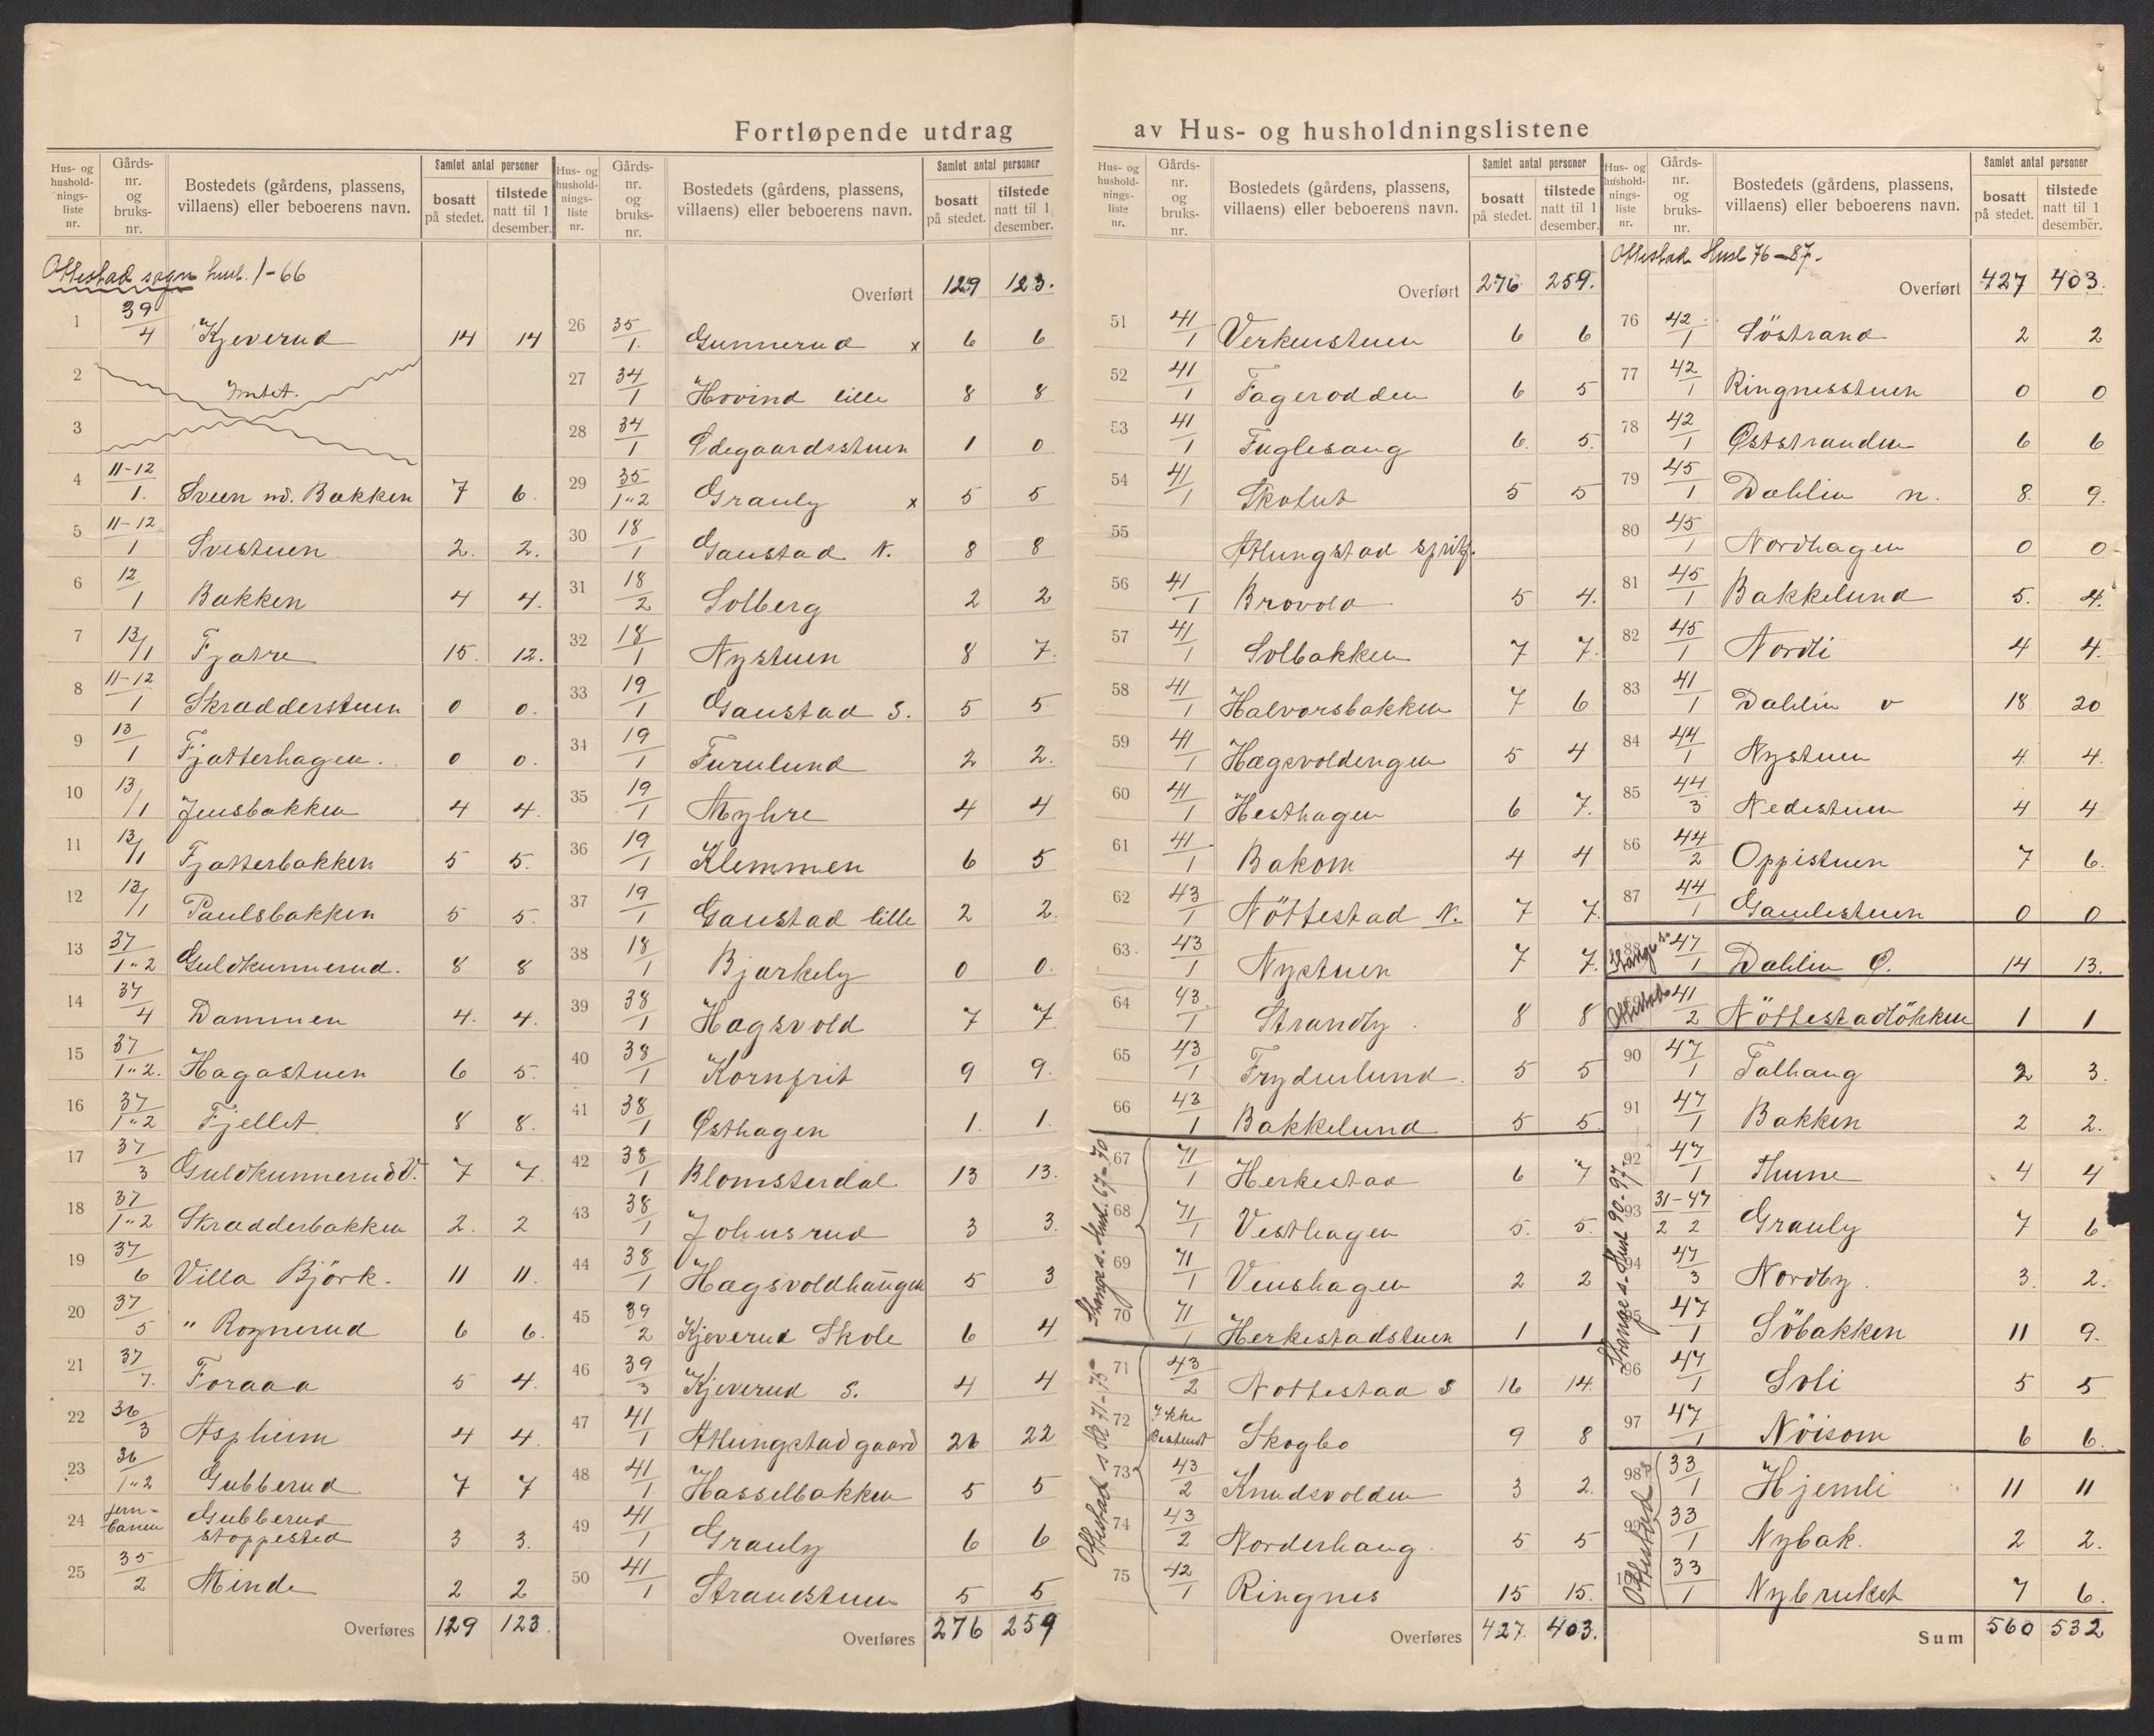 Fortløpende utdrag av Hus- og husholdningslistene
Hus- og husholdningsliste nr. | Gårds-nr. og bruks-nr. | Bostedets (gårdens, plassens, villaens) eller beboerens navn. | Samlet antal personer | bosatt på stedet. | tilstede natt til 1 desember.
Ottestad sogn husl. 1-66
1 39/4 Kjeverud 14 14
2 Intet.
3
4 11-12/1. Sveen nd. Bakken 7 6.
5 11-12/1 Svestuen 2. 2.
6 12/1 Bakken 4 4.
7 13/1 Fjatre 15. 12.
8 11-12/1 Skrædderstuen 0 0.
9 13/1 Fjatterhagen. 0 0.
10 13/1 Jensbakken 4 4.
11 13/1 Fjatterbakken 5 5.
12 13/1 Paulsbakken 5 5.
13 37/1"2 Guldkunnerud. 8 8
14 37/4 Dammen 4. 4.
15 37/1"2. Hagastuen 6 5.
16 37/1"2 Fjellet 8 8.
17 37/3 Guldkunnerud V. 7 7
18 37/1"2 Skrædderbakken 2. 2
19 37/6 Villa Björk. 11 11.
20 37/5 " Rognerud 6 6.
21 37/7. Foraaa 5 4.
22 36/3 Aspheim 4 4.
23 36/1"2 Gubberud 7 7
24 jern-banen Gubberud stoppested 3 3.
25 35/2 Minde 2 2
Overføres 129 123.
Hus- og husholdningsliste nr. | Gårds-nr. og bruks-nr. | Bostedets (gårdens, plassens, villaens) eller beboerens navn. | Samlet antal personer | bosatt på stedet. | tilstede natt til 1 desember.
Overført 129 123.
26 35/1. Gunnerud x 6 6
27 34/1 Hovind lille 8 8
28 34/1 Ødegaardsstuen 1 0
29 35/1"2 Granly x 5 5
30 18/1 Gaustad N. 8 8
31 18/2 Solberg 2 2
32 18/1 Nystuen 8 7.
33 19/1 Gaustad S. 5 5
34 19/1 Furulund 2 2.
35 19/1 Myhre 4 4
36 19/1 Klemmen 6 5
37 19/1 Gaustad lille 2 2.
38 18/1 Bjarkely 0 0.
39 38/1 Hagsvold 7 7
40 38/1 Kornfrit 9 9.
41 38/1 Østhagen 1. 1.
42 38/1 Blomsterdal 13 13.
43 38/1 Johnsrud 3 3.
44 38/1 Hagsvoldhaugen 5 3
45 39/2 Kjeverud Skole 6 4
46 39/3 Kjeverud S. 4 4
47 41/1 Atlungstad gaard 26 22
48 41/1 Hasselbakken 5 5
49 41/1 Granly 6 6
50 41/1 Strandstuen 5 5
Overføres 276 259
Hus- og husholdningsliste nr. | Gårds-nr. og bruks-nr. | Bostedets (gårdens, plassens, villaens) eller beboerens navn. | Samlet antal personer | bosatt på stedet. | tilstede natt til 1 desember.
Overført 276 259.
51 41/1 Verkenstuen 6 6
52 41/1 Fagerodden 6 5
53 41/1 Fuglesang 6. 5.
54 41/1 Skolut 5 5
55 Atlungstad spritf.
56 41/1 Brovold 5 4.
57 41/1 Solbakken 7 7.
58 41/1 Halvorsbakken 7 6
59 41/1 Hagsvoldengen 5 4
60 41/1 Hesthagen 6 7.
61 41/1 Bakom 4 4
62 43/1 Nöttestad N. 7 7.
63. 43/1 Nystuen 7 7.
64 43/1 Strandby. 8 8
65 43/1 Frydenlund. 5 5
66 43/1 Bakkelund 5 5.
Stange s. Husl. 67-70
67 71/1 Herkestad 6 7
68 71/1 Vesthagen 5. 5.
69 71/1 Venshagen 2 2
70 71/1 Herkestadstuen 1 1
Ottestad s Hl 71-75
71 43/2 Nottestad S 16 14.
72 Ikke Bestemt Skogbo 9 8
73 43/2 Knudsvolden 3 2.
74 43/2 Norderhaug. 5 5
75 42/1 Ringnes 15 15.
Overføres 427. 403.
Hus- og husholdningsliste nr. | Gårds-nr. og bruks-nr. | Bostedets (gårdens, plassens, villaens) eller beboerens navn. | Samlet antal personer | bosatt på stedet. | tilstede natt til 1 desember.
Ottestad Husl 76-87.
Overført 427 403.
76 42/1 Söstrand 2 2
77 42/1 Ringnesstuen 0 0
78 42/1 Øststranden 6 6
79 45/1 Dahlin n. 8. 9.
80 45/1 Nordhagen 0 0
81 45/1 Bakkelund 5. 4.
82 45/1 Nordli 4 4.
83 41/1 Dahlin v 18 20
84 44/1 Nystuen 4 4.
85 44/3 Nedestuen 4 4
86 44/2 Oppistuen 7 6.
87 44/1 Gamlestuen 0 0
Stange s.
88 47/1 Dahlin Ø. 14 13.
Ottestad
41/2 Nöttestadlökken 1 1
Stange s. Husl 90-97
90 47/1 Talhaug 2 3.
91 47/1 Bakken 2 2.
92 47/1 Thune 4 4
93 31-47/2 2 Granly 7 6
94 47/3 Nordby. 3. 2.
95 47/1 Söbakken 11 9.
96 47/1 Soli 5 5
97 47/1 Nöisom 6 6.
Ottestad s
98 33/1 Hjemli 11 11
99 33/1 Nybak. 2 2.
33/1 Nybruket 7 6.
Sum 560 532